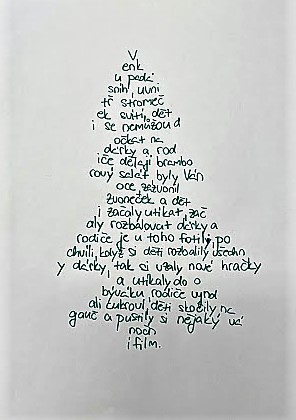 V
enk
u padá
sníh, uvni
tř stromeč
ek svítí, dět
i se nemůžou d
očkat na
dárky a rod
iče dělají brambo
rový salát byly Ván
oce, zazvonil
zvoneček a dět
i začaly utíkat, zač
aly rozbalovat dárky a
rodiče je u toho fotily, po
chvíli, když si děti rozbalily všechn
y dárky, tak si vzaly nové hračky
a utíkaly do o
býváku rodiče vynd
ali cukroví, děti skočily na
gauč a pustily si nějaký vá
noční
film.